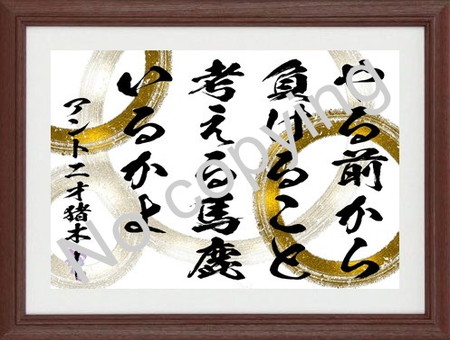 やる前から
負けること
考える馬鹿
いるかよ
アントニオ猪木
No copying